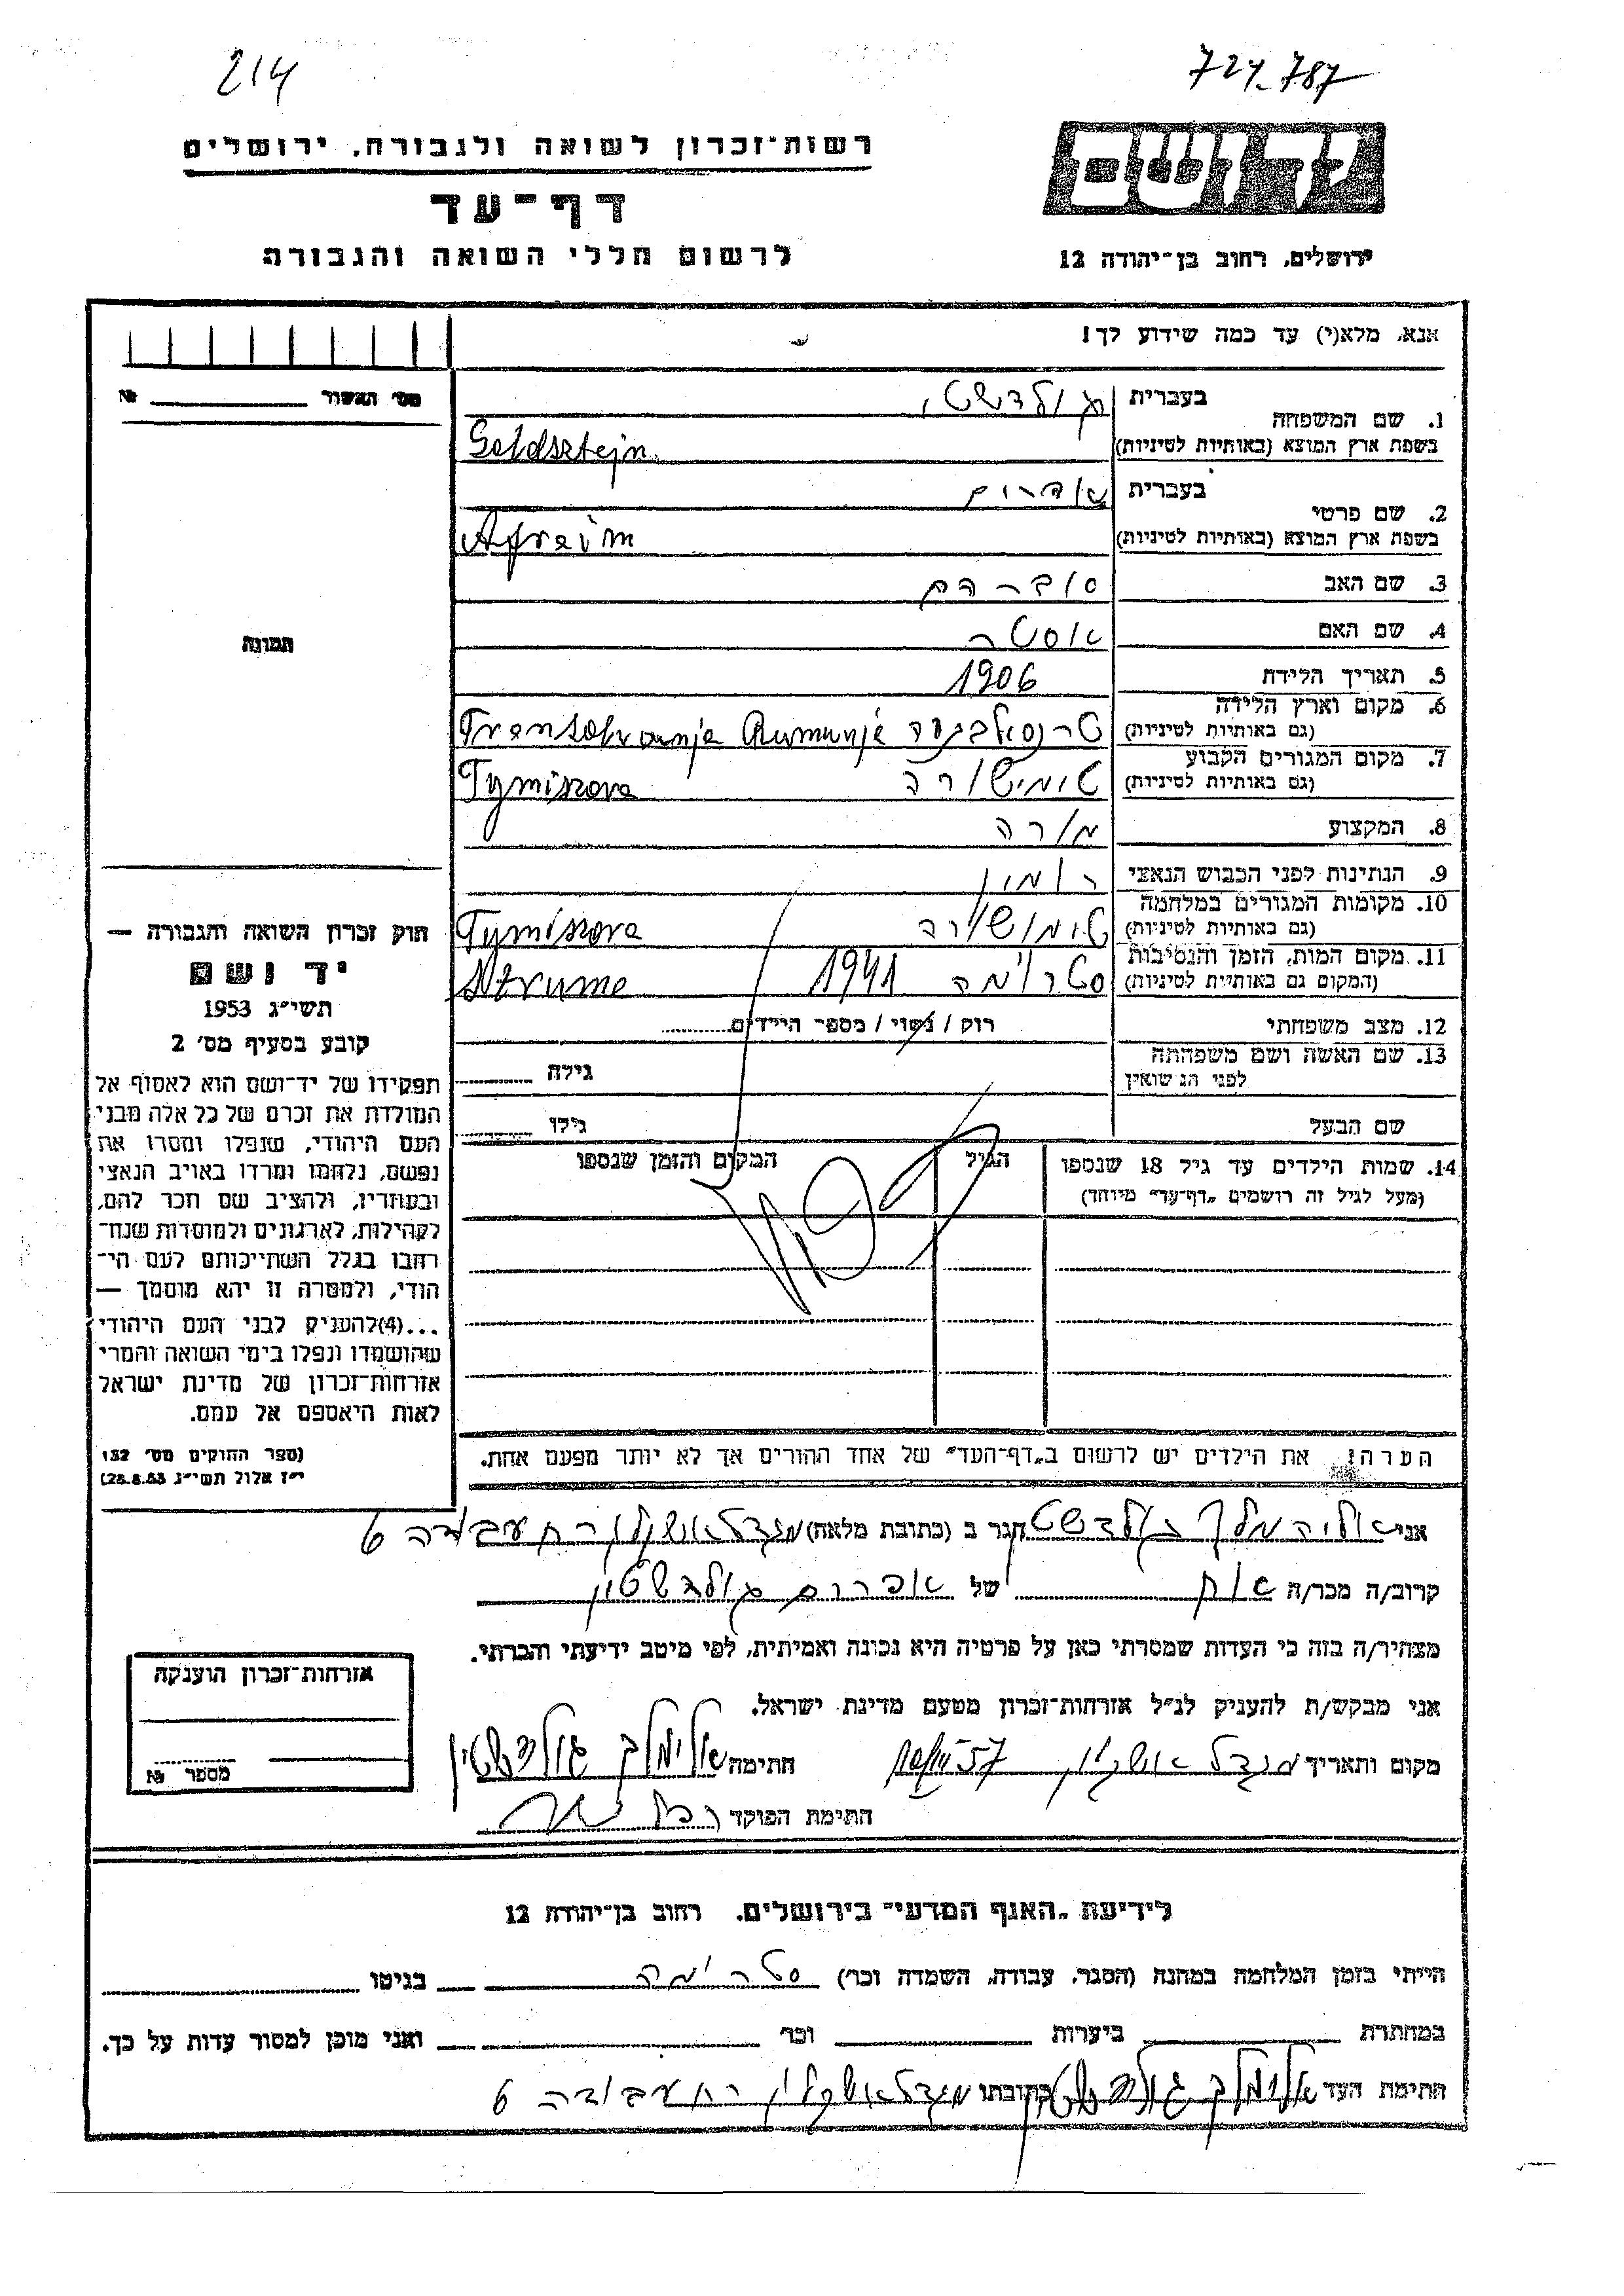 214
724-787
רשות־זכרון לשואה ולגבורה, ירושלים
דף־עד
לרשום חללי השואה והגבורה
יד ושם
ירושלים, רחוב בן־יהודה 12
אנא, מלא(י) עד כמה שידוע לך!
מס׳ האשור № ________
1. שם המשפחה
בעברית
בשפת ארץ המוצא (באותיות לטיניות) Goldsztejn
2. שם פרטי
בעברית אפרים
בשפת ארץ המוצא (באותיות לטיניות) Afreim
3. שם האב
4. שם האם אסטר
5. תאריך הלידה 1906
6. מקום וארץ הלידה
(גם באותיות לטיניות) Rumunje
7. מקום המגורים הקבוע
(גם באותיות לטיניות) Tymiszora
8. המקצוע מורה
9. הנתינות לפני הכבוש הנאצי רומון
10. מקומות המגורים במלחמה
(גם באותיות לטיניות) Tymiszora
11. מקום המות, הזמן והנסיבות
(המקום גם באותיות לטיניות) סטרומה 1941 Strume
12. מצב משפחתי רוק / נשוי / מספר הילדים........
13. שם האשה ושם משפחתה
לפני הנשואין
גילה ........
שם הבעל גילו ........
14. שמות הילדים עד גיל 18 שנספו
(מעל לגיל זה רושמים „דף־עד״ מיוחד)
הגיל
המקום והזמן שנספו
תמונה
חוק זכרון השואה והגבורה —
יד ושם
תשי״ג 1953
קובע בסעיף מס׳ 2
תפקידו של יד־ושם הוא לאסוף אל
המולדת את זכרם של כל אלה מבני
העם היהודי, שנפלו ומסרו את
נפשם, נלחמו ומרדו באויב הנאצי
ובעוזריו, ולהציב שם וזכר להם,
לקהילות, לארגונים ולמוסדות שנח־
רבו בגלל השתייכותם לעם הי־
הודי, ולמטרה זו יהא מוסמך —
...(4)להעניק לבני העם היהודי
שהושמדו ונפלו בימי השואה והמרי
אזרחות־זכרון של מדינת ישראל
לאות היאספם אל עמם.
(ספר החוקים מס׳ 132
י״ז אלול תשי״ג 28.8.53)
הערה! את הילדים יש לרשום ב„דף־העד״ של אחד ההורים אך לא יותר מפעם אחת.
אני אלימלך גולדשט הגר ב (כתובת מלאה) מגדל אשקלון רח עבודה 6
קרוב/ה מכר/ה אח של אפרים גולדשטיין
מצהיר/ה בזה כי העדות שמסרתי כאן על פרטיה היא נכונה ואמיתית, לפי מיטב ידיעתי והכרתי.
אני מבקש/ת להעניק לנ״ל אזרחות־זכרון מטעם מדינת ישראל.
מקום ותאריך מגדל אשקלון 57 חתימה אלימלך גולדשטיין
חתימת הפוקד
אזרחות־זכרון הוענקה
מספר №
לידיעת „האגף המדעי״ בירושלים, רחוב בן־יהודה 12
הייתי בזמן המלחמה במחנה (הסגר, עבודה, השמדה וכו׳) סטרומה בגיטו ........
במחתרת ________ ביערות ________ וכו׳ ________ ואני מוכן למסור עדות על כך.
חתימת העד אלימלך גולדשטיין כתובתו מגדל אשקלון רח עבודה 6